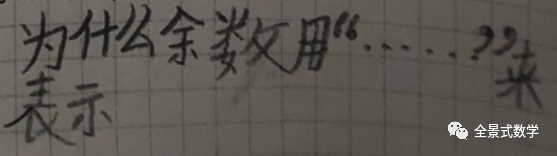 为什么余数用“……”来
表示
全景式数学